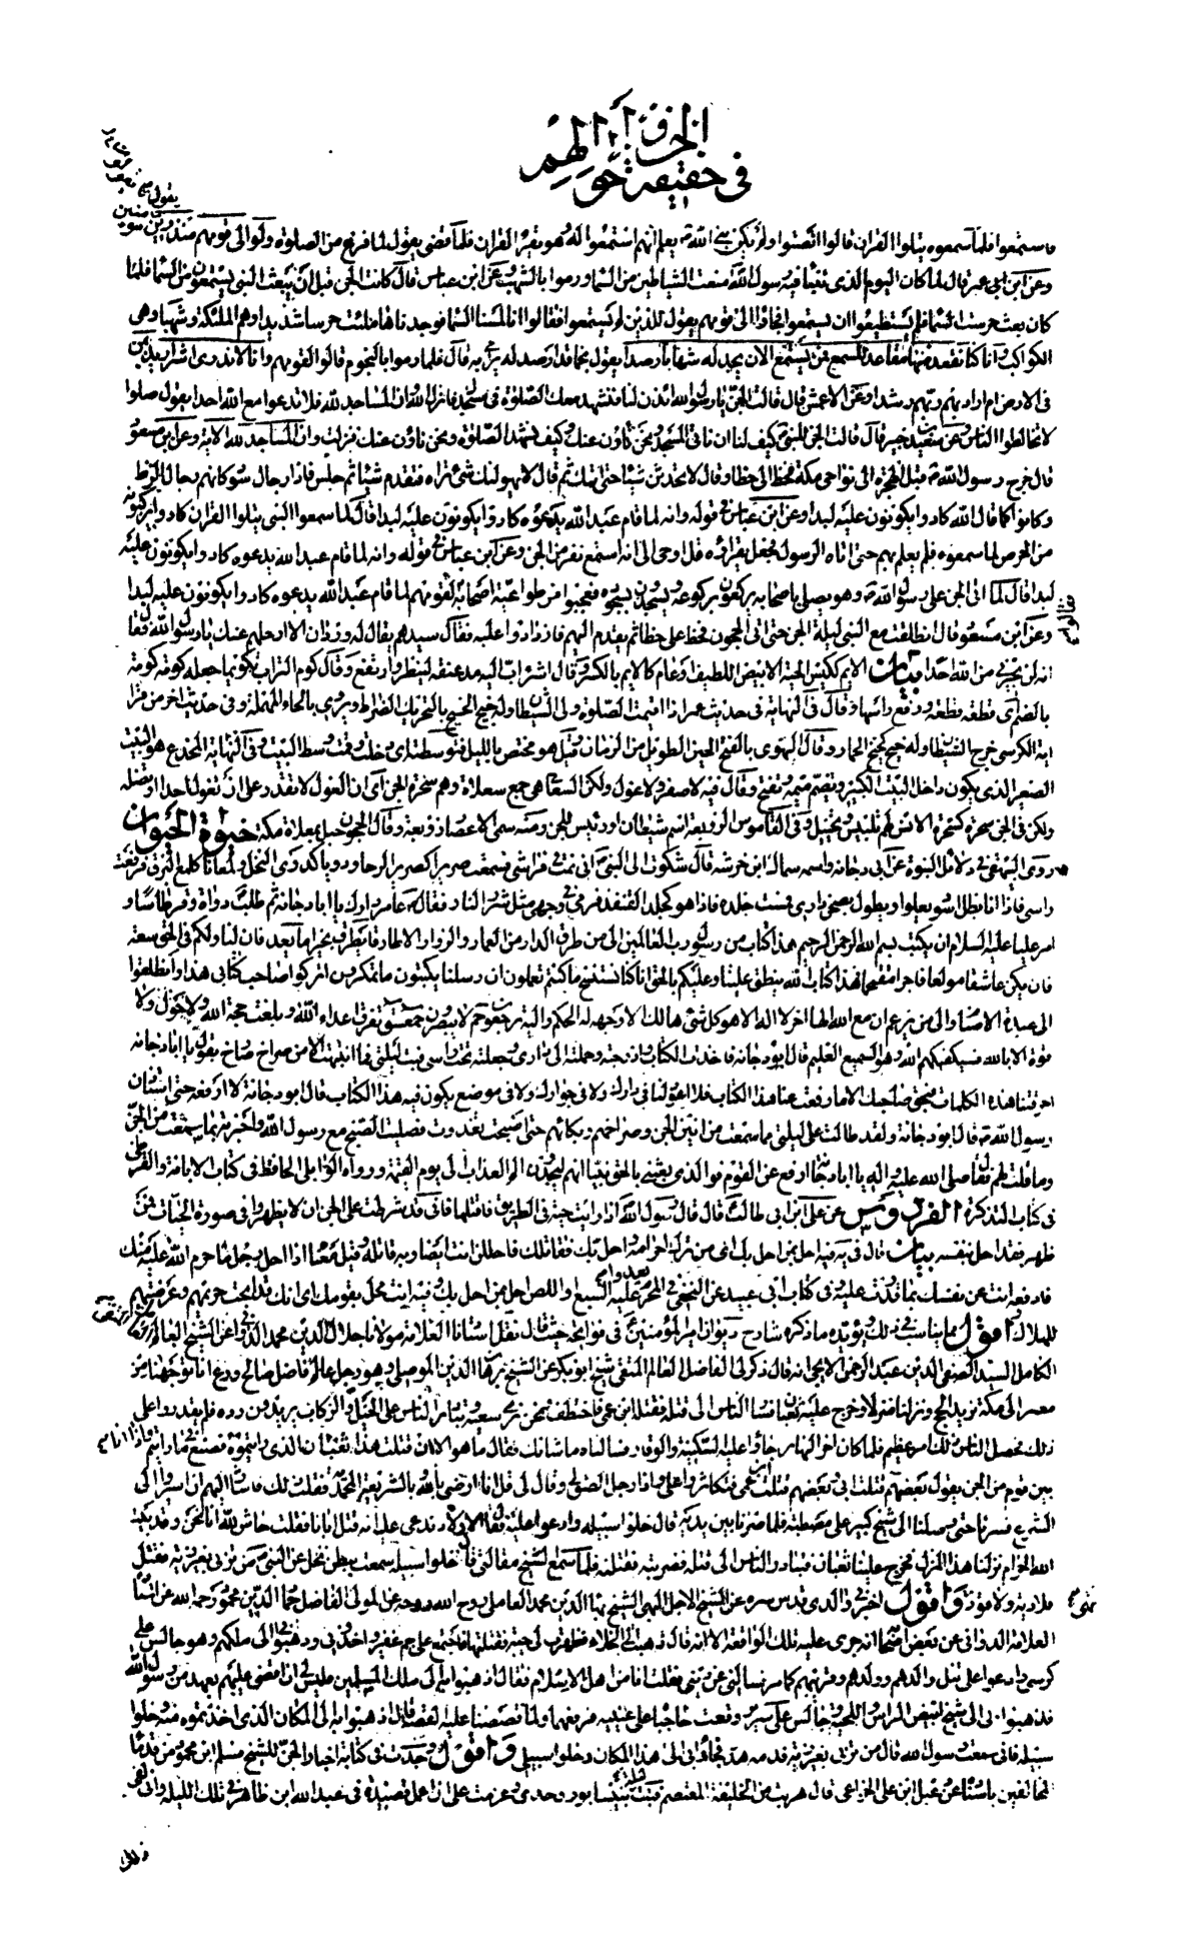 الجن و أحوالهم
في حقيقة
فاستمعوا فلما سمعوه يتلوا القران قالوا انصتوا ولم يكن نبي الله ص يعلم انهم استمعوا له وهو يقرأ القران فلما قضى يقول لما فرغ من الصلوة ولوا الى قومهم منذرين
وعن ابن عمر قال لما كان اليوم الذي تنبأ فيه رسول الله منعت الشياطين من السماء ورموا بالشهب وعن ابن عباس قال كانت الجن قبل ان يبعث النبي يستمعون من السماء فلما
كان بعث حرست السماء فلم يستطيعوا ان يستمعوا فجاؤا الى قومهم يقول للذين لم يستمعوا فقالوا انا لمسنا السماء فوجدناها ملئت حرسا شديدا وهم الملئكة وشهبا وهي
الكواكب وانا كنا نقعد منها مقاعد للسمع فمن يستمع الان يجد له شهابا رصدا يقول نجما قد ارصد له يرمى به قال فلما رموا بالنجوم قالوا لقومهم وانا لا ندري اشر اريد بمن
في الارض ام اراد بهم ربهم رشدا وعن الاعمش قال قالت الجن يا رسول الله ائذن لنا فنشهد معك الصلوة في مسجدك فانزل الله وان المساجد لله فلا تدعوا مع الله احدا يقول صلوا
لا تخالطوا الناس وعن سعيد بن جبير قال قالت الجن للنبي كيف لنا ان ناتي المسجد ونحن ناؤن عنك وكيف نشهد الصلوة ونحن ناؤن عنك فنزلت وان المساجد لله الاية وعن ابن مسعود
قال خرج رسول الله ص قبل الهجرة الى نواحي مكة فخط لي خطا وقال لا تحدثن شيئا حتى اتيك ثم قال لا يهولنك شيء تراه فتقدم شيئا ثم جلس فاذا رجال سود كانهم رجال الزط
وكانوا كما قال الله كادوا يكونون عليه لبدا وعن ابن عباس في قوله وانه لما قام عبد الله يدعوه كادوا يكونون عليه لبدا قال لما سمعوا النبي يتلوا القران كادوا يركبونه
من الحرص لما سمعوه فلم يعلم بهم حتى اتاه الرسول فجعل يقرؤه قل اوحى الي انه استمع نفر من الجن وعن ابن عباس في قوله وانه لما قام عبد الله يدعوه كادوا يكونون عليه
لبدا قال لما اتى الجن على رسول الله ص وهو يصلي باصحابه يركعون بركوعه ويسجدون بسجوده فعجبوا من طواعية اصحابه فقالوا لقومهم لما قام عبد الله يدعوه كادوا يكونون عليه لبدا
وعن ابن مسعود قال انطلقت مع النبي ليلة الجن حتى اتى الحجون فخط علي خطا ثم تقدم اليهم فازدادوا عليه فقال سيدهم يقال له وردان الا ارحلهم عنك يا رسول الله فقال
انه لن يجيرني من الله احد بيان الايم ككيس الحية الابيض اللطيف وعام كالايم بالكسر وقال اشراب اليه مد عنقه لينظر او ارتفع وقال كوم التراب تكويما جعله كومة كومة
بالضم اي قطعة قطعة ورفع راسها وقال في النهاية في حديث عمر اذا اقيمت الصلوة ولى الشيطان وله خبج الخبج بالتحريك الضراط ويروى بالحاء المهملة وفي حديث اخر من قرأ
اية الكرسي خرج الشيطان وله خبج كخبج الحمار وقال الهوي بالفتح الحين الطويل من الزمان وقيل هو مختص بالليل فتوسطته اي دخلت وقت وسط البيت وفي النهاية المخدع هو البيت
الصغير الذي يكون داخل البيت الكبير وتضم ميمه وتفتح وقال فيه لا صفر ولا غول ولكن السعالي هي جمع سعلاة وهم سحرة الجن اي ان الغول لا تقدر على ان تغول احدا او تضله
ولكن في الجن سحرة كسحرة الانس لهم تلبيس وتخييل وفي القاموس الزوبعة اسم شيطان او رئيس للجن ومنه سمي الاعصار زوبعة وقال الحجون جبل بمعلاة مكة حيوة الحيوان
روى البيهقي في دلائل النبوة عن ابي دجانة واسمه سماك ابن خرشه قال شكوت الى النبي اني نمت في فراشي فسمعت صريرا كصرير الرحا ودويا كدوي النحل ولمعانا كلمع البرق فرفعت
راسي فاذا انا بظل اسود يعلو ويطول بصحن داري فمسست جلده فاذا هو كجلد القنفذ فرمى في وجهي مثل شرر النار فقال ص عامر دارك يا ابا دجانة ثم طلب دواة وقرطاسا و
امر عليا عليه السلام ان يكتب بسم الله الرحمن الرحيم هذا كتاب من رسول رب العالمين الى من طرق الدار من العمار والزوار الا طارقا يطرق بخير اما بعد فان لنا ولكم في الحق سعة
فان يكن عاشقا مولعا او فاجرا مقتحما فهذا كتاب الله ينطق علينا وعليكم بالحق انا كنا نستنسخ ما كنتم تعملون ان رسلنا يكتبون ما تمكرون اتركوا صاحب كتابي هذا وانطلقوا
الى عبدة الاصنام والى من يزعم ان مع الله الها اخر لا اله الا هو كل شيء هالك الا وجهه له الحكم واليه ترجعون حم لا ينصرون حمعسق تفرق اعداء الله وبلغت حجة الله ولا حول ولا
قوة الا بالله فسيكفيكهم الله وهو السميع العليم قال ابو دجانة فاخذت الكتاب وادرجته وحملته الى داري وجعلته تحت راسي فبت ليلتي فما انتبهت الا من صراخ صارخ يقول يا ابا دجانة
احرقتنا هذه الكلمات فبحق صاحبك الا ما رفعت عنا هذا الكتاب فلا عود لنا في دارك ولا في جوارك ولا في موضع يكون فيه هذا الكتاب قال ابو دجانة لا ارفعه حتى استاذن
رسول الله ص قال ابو دجانة ولقد طالت علي ليلتي مما سمعت من انين الجن وصراخهم وبكائهم حتى اصبحت فغدوت فصليت الصبح مع رسول الله واخبرته بما سمعت من الجن
وما قلت لهم فقال صلى الله عليه واله يا ابا دجانة ارفع عن القوم فوالذي بعثني بالحق نبيا انهم ليجدون الم العذاب الى يوم القيمة ورواه الوابلي الحافظ في كتاب الابانة والقرطبي
في كتاب التذكرة الفردوس عن علي ابن ابي طالب قال قال رسول الله اذا رايت حية في الطريق فاقتلها فاني قد شرطت على الجن ان لا يظهروا في صورة الحيات فمن
ظهر فقد احل بنفسه بيان قال في يه فيه احل بمن احل بك اي من ترك احرامه واحل بك فقاتلك فاحلل انت ايضا وبه قاتله وقيل معناه اذا احل رجل ما حرم الله عليه منك
فادفعه انت عن نفسك بما قدرت عليه وفي كتاب ابي عبيد عن النخعي في المحرم يعدو عليه السبع او اللص احل بمن احل بك وفيه انت محل بقومك اي انك قد ابحت حريمهم وعرضتهم
للهلاك اقول ما يناسب ذلك ويؤيده ما ذكره شارح ديوان امير المؤمنين في فواتحه حيث قال نقل استاذنا العلامة مولانا جلال الدين محمد الدواني عن الشيخ العالم
الكامل السيد الصفي الدين عبد الرحمن الايجي انه قال ذكر لي الفاضل العالم المتقي شيخ ابو بكر عن الشيخ برهان الدين الموصلي وهو رجل عالم فاضل صالح ورع انا توجهنا من
مصر الى مكة نريد الحج ونزلنا منزلا وخرج علينا ثعبان فثار الناس الى قتله فقتله ابن عمي فاختطف ونحن نرى سعيه وتبادر الناس على الخيل والركاب يريدون رده فلم يقدروا على
ذلك فحصل للناس لذلك امر عظيم فلما كان اخر النهار جاء وعليه السكينة والوقار فسالناه ما شانك فقال ما هو الا ان قتلت هذا الثعبان الذي رايتموه فصنع بي ما رايتم
بين قوم من الجن يقول بعضهم قتلت ابي وبعضهم قتلت ابن عمي فتكاثروا علي واذا رجل لصق بي وقال لي قل انا ارضى بالله وبالشريعة المحمدية فقلت ذلك فاشار اليهم ان سيروا الى
الشرع فسرنا حتى وصلنا الى شيخ كبير على مصطبة فلما صرنا بين يديه قال خلوا سبيله وادعوا عليه فقال الاولاد ندعي عليه انه قتل ابانا فقلت حاش لله انا نحن وفد بيت
الله الحرام نزلنا هذا المنزل فخرج علينا ثعبان فتبادر الناس الى قتله فضربته فقتلته فلما سمع الشيخ مقالتي قال خلوا سبيله سمعت ببطن نخل عن النبي ص من تزيى بغير زيه فقتل
فلا دية ولا قود واقول اخبرني والدي قدس سره عن الشيخ الاجل البهي الشيخ بهاء الدين محمد العاملي روح الله روحه عن المولى الفاضل جمال الدين محمود رحمه الله عن استاذه
العلامة الدواني عن بعض اصحابه انه جرى عليه تلك الواقعة الا انه قال ذهبت الى الخلاء فظهرت لي حية فقتلتها فاجتمع علي جم غفير واخذوني وذهبوا بي الى ملكهم وهو جالس على
كرسي وادعوا علي قتل والدهم وولدهم وقريبهم كما مر فسالني عن ديني فقلت انا من اهل الاسلام فقال اذهبوا به الى ملك المسلمين فليس لي ان اقضي عليهم بعهد من رسول الله
فذهبوا بي الى شيخ ابيض الراس واللحية جالس على سرير وقعت حاجباه على عينيه فرفعهما ولما قصصنا عليه القصة قال اذهبوا به الى المكان الذي اخذتموه منه وخلوا
سبيله فاني سمعت رسول الله قال من تزيى بغير زيه فدمه هدر فجاؤا بي الى هذا المكان وخلوا سبيلي واقول وجدت في كتاب اخبار الجن للشيخ مسلم ابن محمود من قدماء
المخالفين باسناده عن دعبل ابن علي الخزاعي قال هربت من الخليفة المعتصم فبت ليلة بنيسابور وحدي وعزمت على ان اعمل قصيدة في عبد الله ابن طاهر في تلك الليلة واني لفي